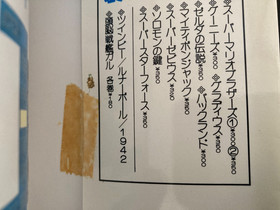 ※スーパーマリオブラザーズ①②
※グーニーズ ※グラディウス
※ゼルダの伝説
※マイティボンジャック
※スーパーゼビウス ※バックランド
※ソロモンの鍵
※スーパースターフォース
※ツインビー/ルナ ボール/1942
※頭脳戦艦ガル 各巻